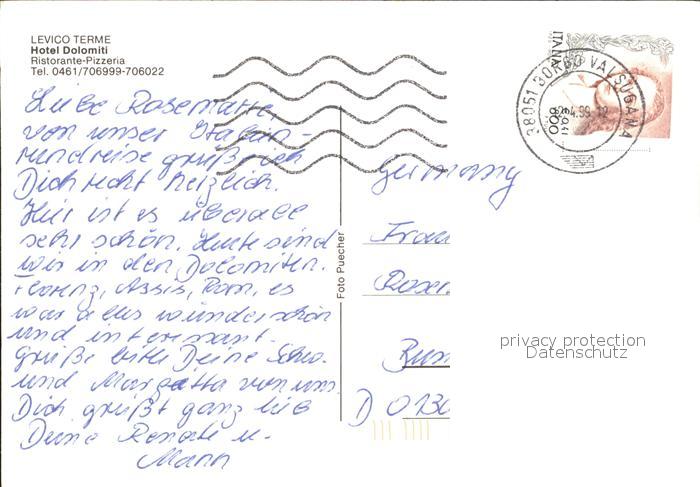 LEVICO TERME
Hotel Dolomiti
Ristorante-Pizzeria
Tel. 0461/706999-706022
Liebe Rosemarie,
von unser Italien-
rundreise grüß ich
Dich recht herzlich.
Hier ist es überall
sehr schön. Heute sind
wir in den Dolomiten.
Florenz, Assis, Rom, es
war alles wunderschön
und interessant.
Grüße bitte Deine Schw.
und Margitta von uns.
Dich grüßt ganz lieb
Deine Renate u.
Mann
Foto Puecher
ITALIA
800
38051 BORGO VALSUGANA
Germany
Frau
Rosem
D 0130
privacy protection
Datenschutz